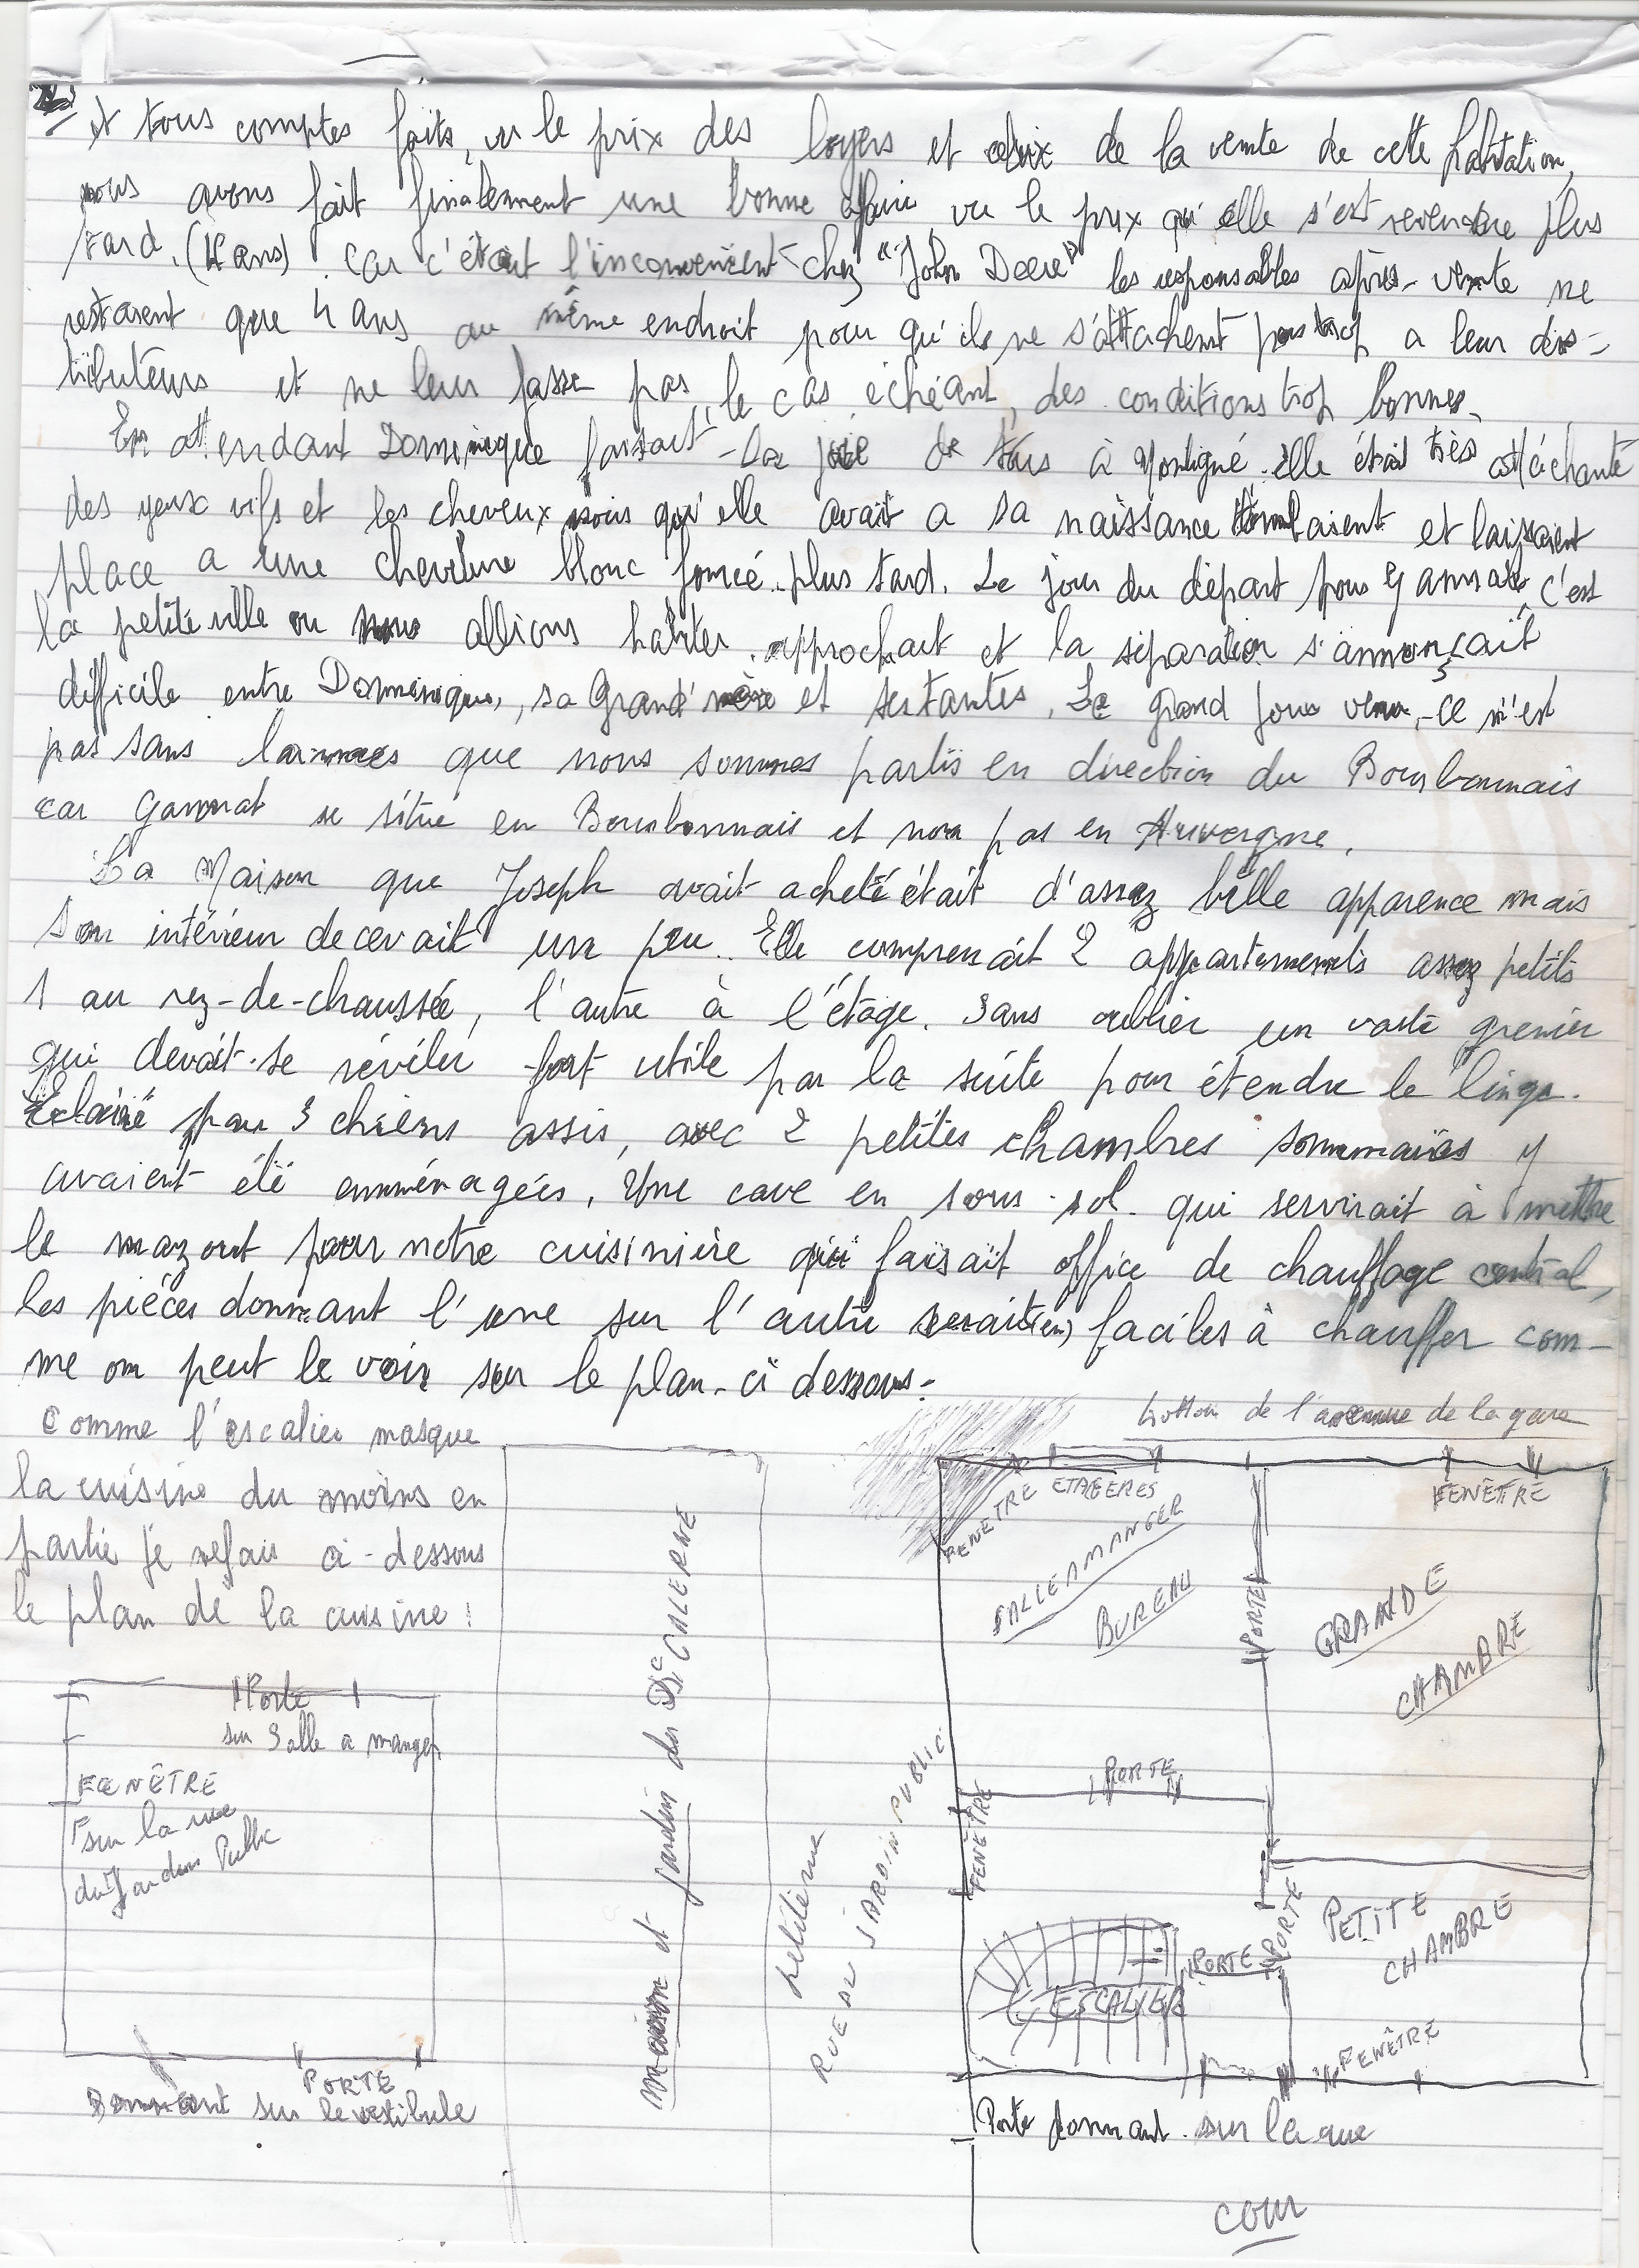 et tous comptes faits, vu le prix des loyers et celui de la vente de cette habitation,
nous avons fait finalement une bonne affaire vu le prix qu'elle s'est revendue plus
tard. (4 ans). Car c'était l'inconvénient chez "John Deere" les responsables après-vente ne
restaient que 4 ans au même endroit pour qu'ils ne s'attachent pas trop a leur dis-
tributeurs et ne leur fasse pas, le cas échéant, des conditions trop bonnes.
En attendant Dominique faisait la joie de tous à Montigné. elle était très attachante
des yeux vifs et les cheveux noirs qu'elle avait a sa naissance tombaient et laissaient
place a une chevelure blonc foncé plus tard. Le jour du départ pour Gannat, c'est
la petite ville ou nous allions habiter. approchait et la séparation s'annonçait
difficile entre Dominique, sa Grand'mère et ses tantes. Le grand jour venu, ce n'est
pas sans larmes que nous sommes partis en direction du Bourbonnais
car Gannat se situe en Bourbonnais et non pas en Auvergne.
La Maison que Joseph avait acheté était d'assez belle apparence mais
son intérieur decevait un peu. Elle comprenait 2 appartements assez petits
1 au rez-de-chaussée, l'autre à l'étage. Sans oublier un vaste grenier
qui devait se révéler fort utile par la suite pour étendre le linge.
Eclairé par 3 chiens assis, avec 2 petites chambres sommaires y
avaient été emménagées. Une cave en sous-sol qui servirait à mettre
le mazout pour notre cuisinière qui faisait office de chauffage central,
les pièces donnant l'une sur l'autre serait(en) faciles à chauffer com-
me on peut le voir sur le plan-ci dessous:
Comme l'escalier masque
la cuisine du moins en
partie je refais ci-dessous
le plan de la cuisine:
trottoir de l'avenue de la gare
FENETRE
ETAGERES
FENÊTRE
SALLE A MANGER
BUREAU
PORTE
GRANDE
CHAMBRE
maison et jardin du Dc CALERNE
RUE DU JARDIN PUBLIC
PORTE
FENÊTRE
ESCALIER
PORTE
PORTE
PETITE
CHAMBRE
FENÊTRE
Porte
sur Salle a manger
FENÊTRE
sur la rue
du Jardin Public
PORTE
Donnant sur le vestibule
Porte donnant sur la
cour